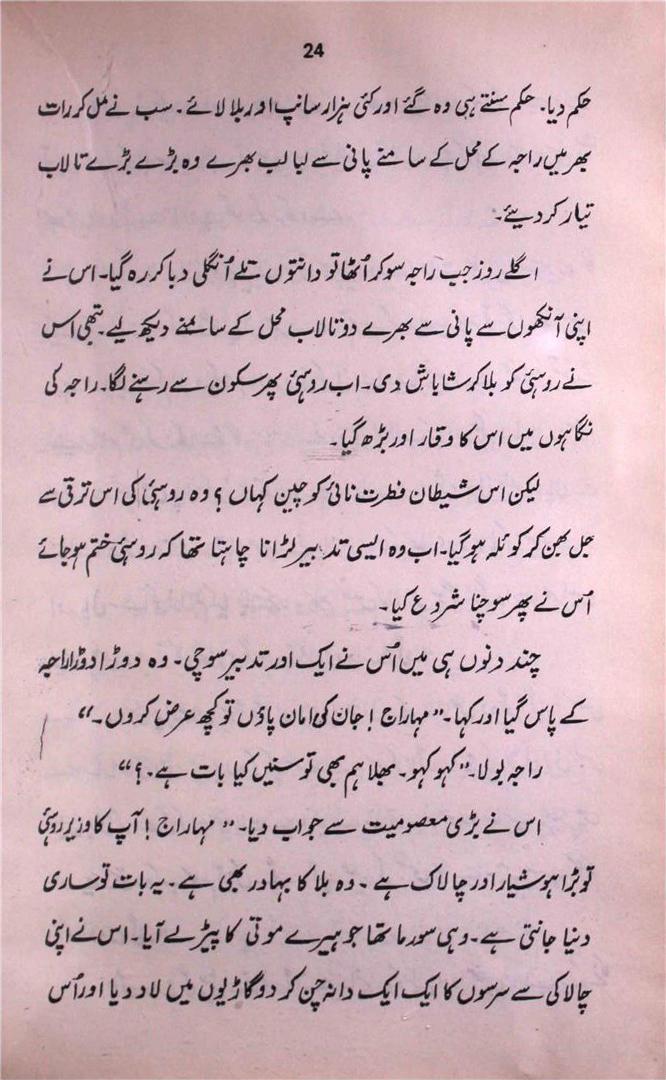 24
حکم دیا۔ حکم سنتے ہی وہ گئے اور کئی ہزار سانپ اور بلا لائے۔ سب نے مل کر رات
بھر میں راجہ کے محل کے سامنے پانی سے لبا لب بھرے وہ بڑے بڑے تالاب
تیار کر دیئے۔
اگلے روز جب راجہ سو کر اُٹھا تو دانتوں تلے اُنگلی دبا کر رہ گیا۔ اس نے
اپنی آنکھوں سے پانی سے بھرے دو تالاب محل کے سامنے دیکھ لیے۔ تبھی اس
نے روسئی کو بلا کر شاباش دی۔ اب روسئی پھر سکون سے رہنے لگا۔ راجہ کی
نگاہوں میں اس کا وقار اور بڑھ گیا۔
لیکن اس شیطان فطرت نائی کو چین کہاں؟ وہ روسئی کی اس ترقی سے
جل بھن کر کوئلہ ہو گیا۔ اب وہ ایسی تدبیر لڑانا چاہتا تھا کہ روسئی ختم ہو جائے
اُس نے پھر سوچنا شروع کیا۔
چند دنوں ہی میں اُس نے ایک اور تدبیر سوچی۔ وہ دوڑا دوڑا راجہ
کے پاس گیا اور کہا۔ ”مہاراج! جان کی امان پاؤں تو کچھ عرض کروں۔“
راجہ بولا۔ ”کہو کہو۔ بھلا ہم بھی تو سنیں کیا بات ہے۔؟“
اس نے بڑی معصومیت سے جواب دیا۔ ”مہاراج! آپ کا وزیر روسئی
تو بڑا ہوشیار اور چالاک ہے۔ وہ بلا کا بہادر بھی ہے۔ یہ بات تو ساری
دنیا جانتی ہے۔ وہی سورما تھا جو ہیرے موتی کا پیڑ لے آیا۔ اس نے اپنی
چالاکی سے سرسوں کا ایک ایک دانہ چن کر دو گاڑیوں میں لاد دیا اور اُس